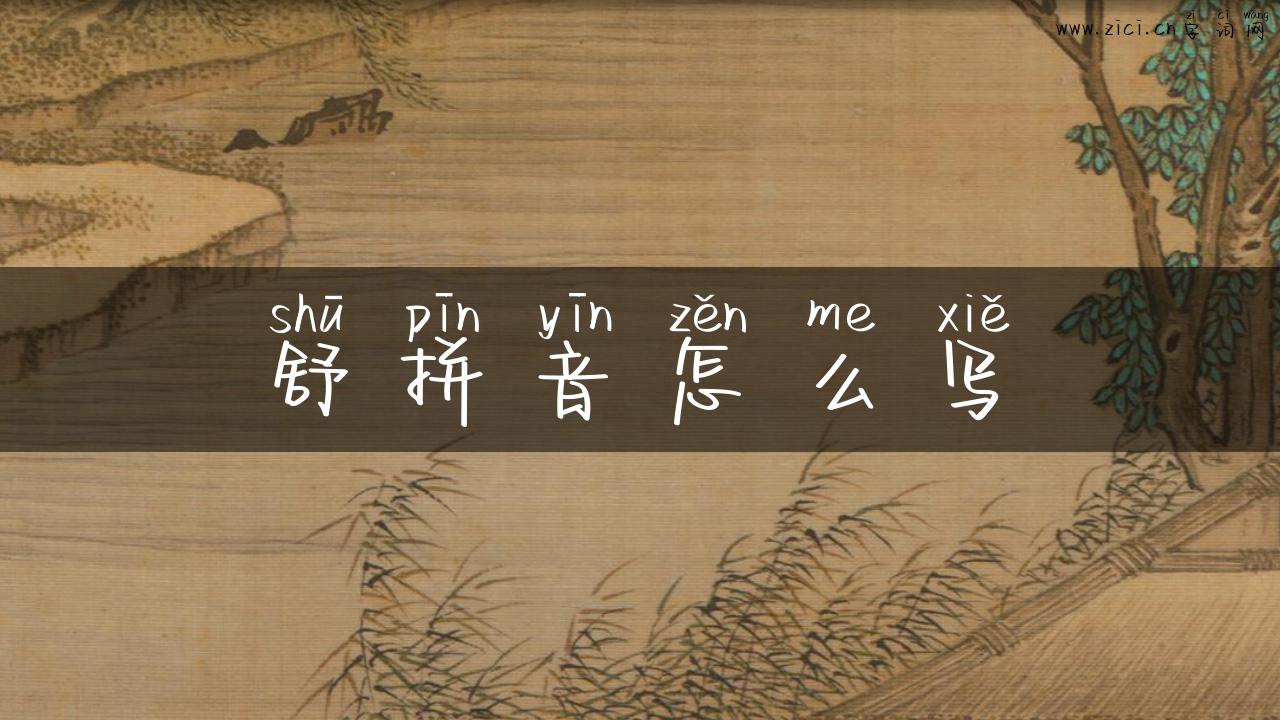 zì cí wǎng
www.zici.cn 字词网
shū pīn yīn zěn me xiě
舒拼音怎么写